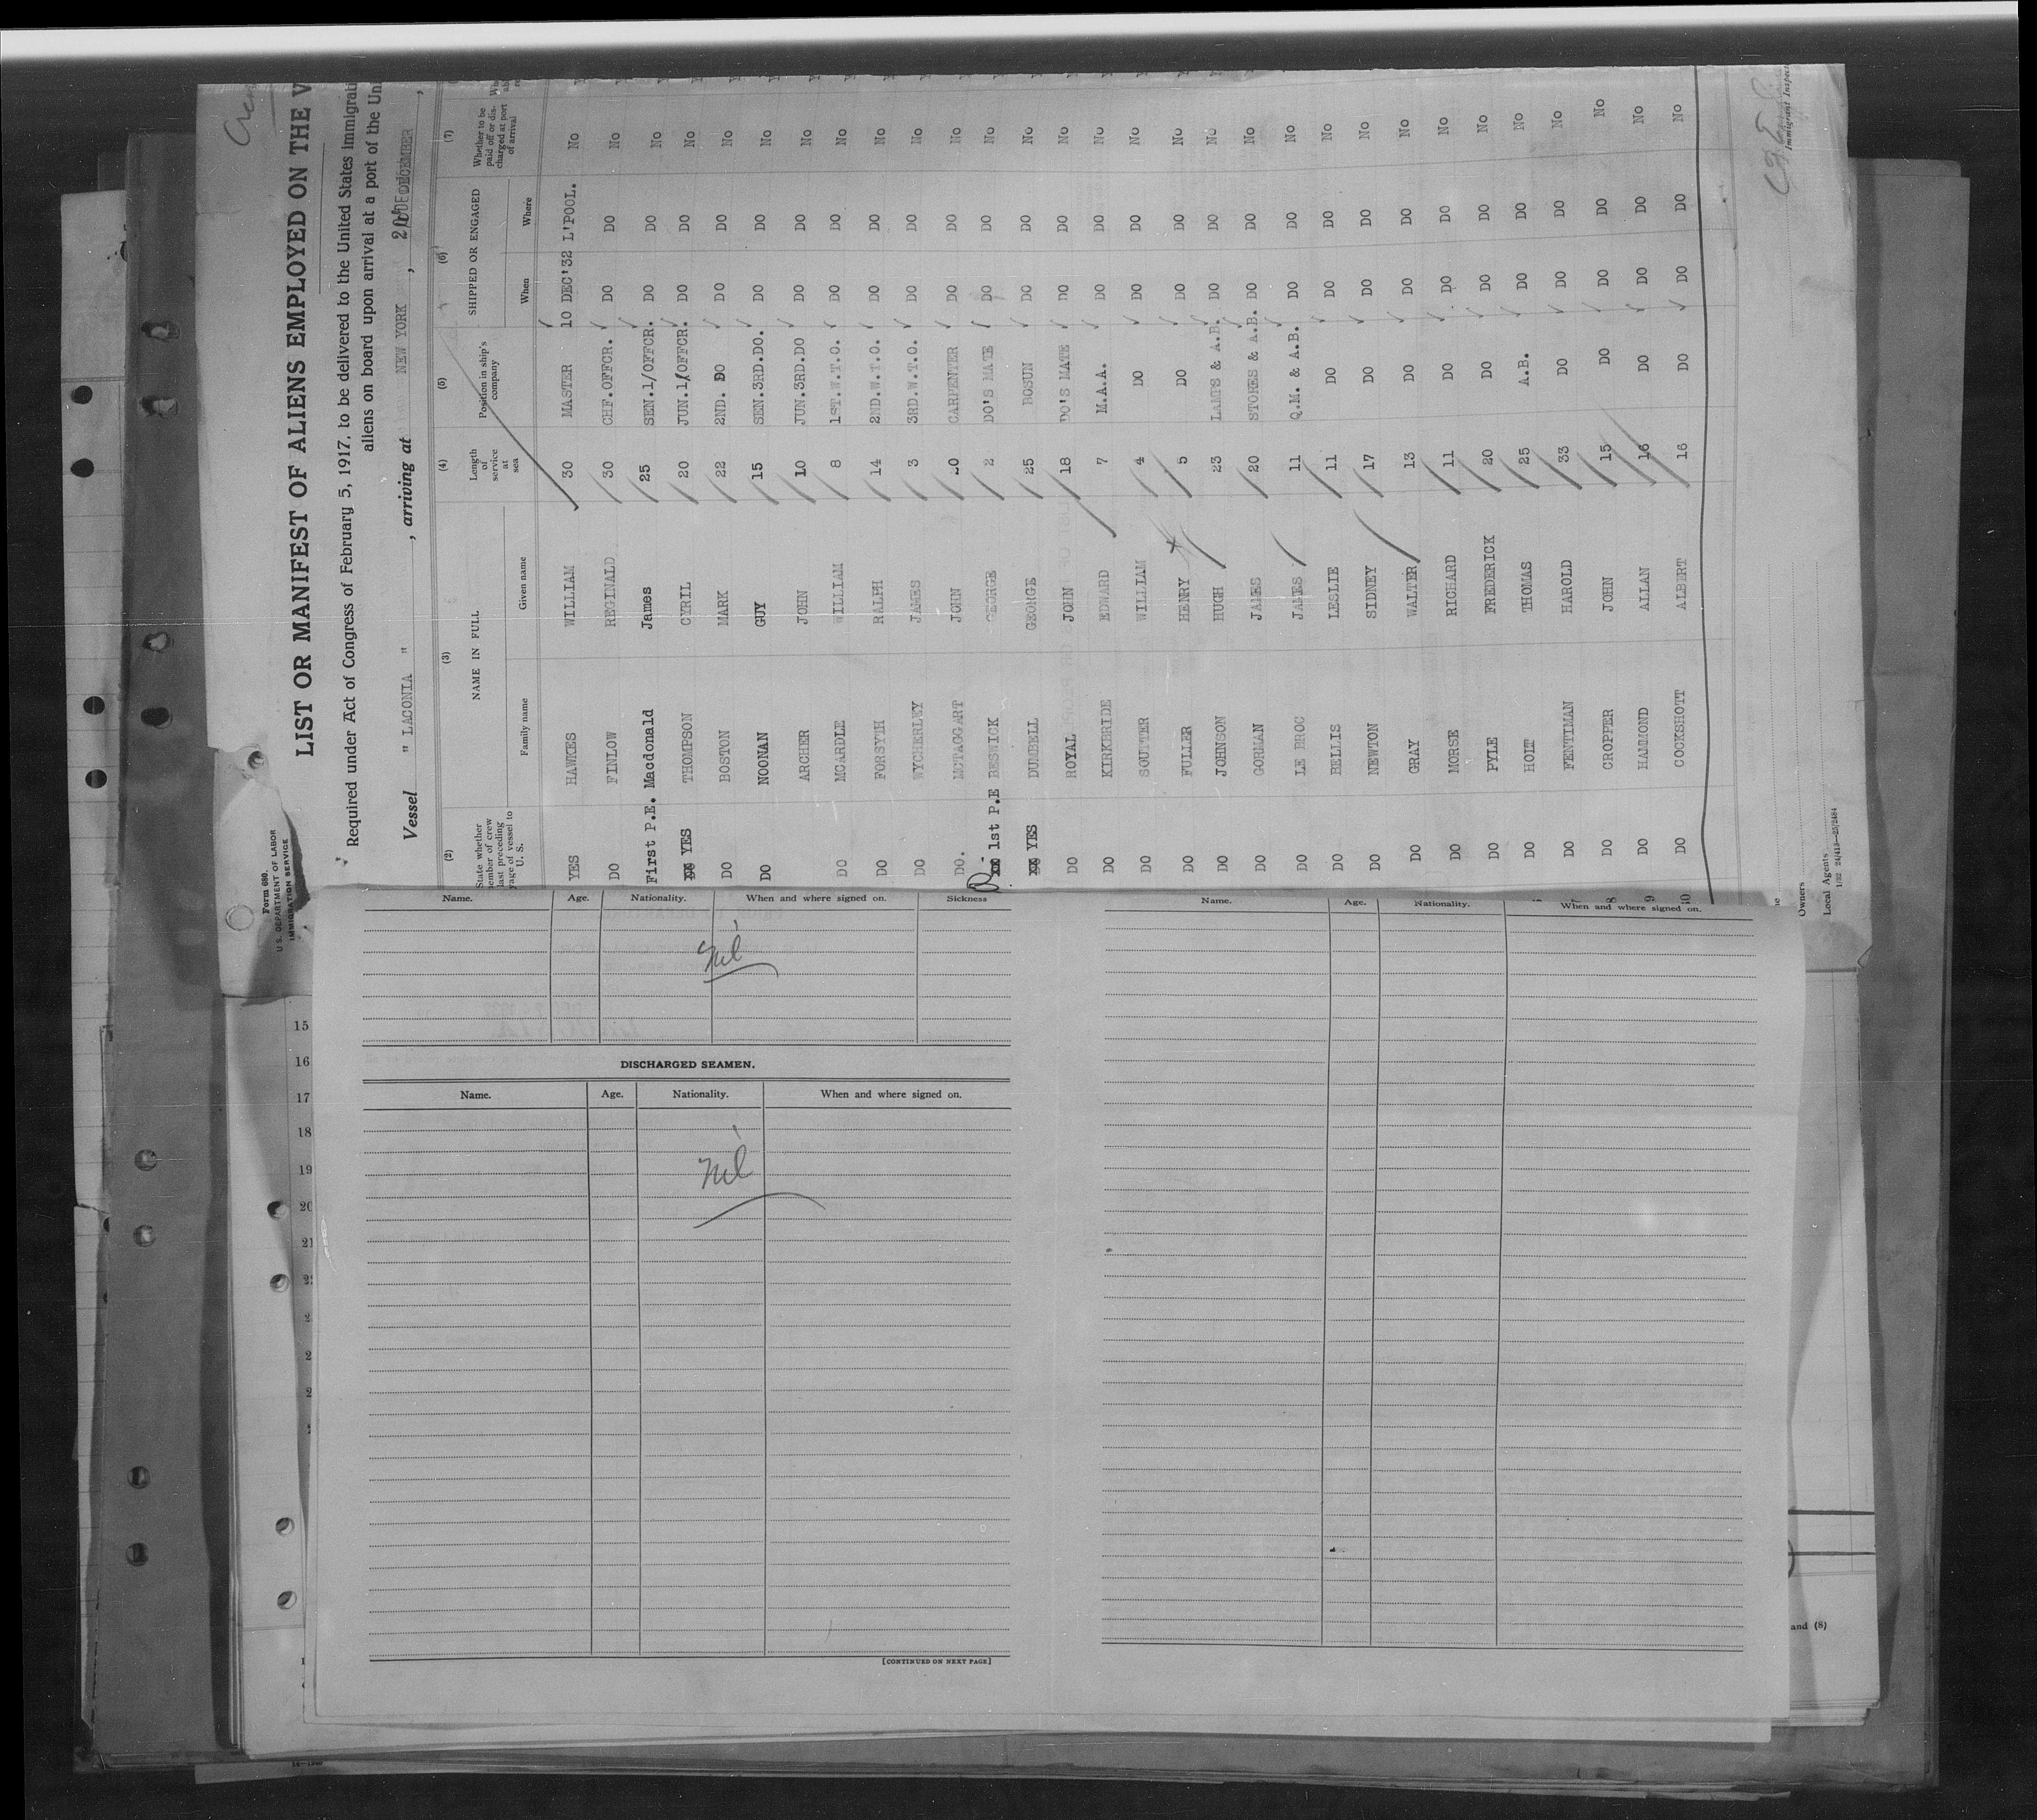 Form 680.
U. S. DEPARTMENT OF LABOR
IMMIGRATION SERVICE
LIST OR MANIFEST OF ALIENS EMPLOYED ON THE
Required under Act of Congress of February 5, 1917, to be delivered to the United States
aliens on board upon arrival at a port of the
Vessel " LACONIA " , arriving at NEW YORK , DECEMBER ,
(2) (3) (4) (5) (6) (7)
State whether
member of crew
last preceding
voyage of vessel to
U. S.
NAME IN FULL
Family name Given name
Length
of
service
at
sea
Position in ship's
company
SHIPPED OR ENGAGED
When Where
Whether to be
paid off or dis-
charged at port
of arrival
YES HAWKES WILLIAM 30 MASTER 10 DEC'32 L'POOL. No
DO FINLOW REGINALD 30 CHF.OFFCR. DO DO No
First P.E. Macdonald James 25 SEN.1/OFFCR. DO DO No
YES THOMPSON CYRIL 20 JUN.1/OFFCR. DO DO No
DO BOSTON MARK 22 2ND. DO DO DO No
DO NOONAN GUY 15 SEN.3RD.DO. DO DO No
ARCHER JOHN 10 JUN.3RD.DO DO DO No
DO MCARDLE WILLIAM 8 1ST.W.T.O. DO DO No
DO FORSYTH RALPH 14 2ND.W.T.O. DO DO No
DO WYCHERLEY JAMES 3 3RD.W.T.O. DO DO No
DO. MCTAGGART JOHN CARPENTER DO DO No
1st P.E BESWICK GEORGE 2 DO'S MATE DO DO No
YES DUMBELL GEORGE 25 BOSUN DO DO No
DO ROYAL JOHN 18 DO'S MATE DO DO No
DO KIRKBRIDE EDWARD 7 M.A.A. DO DO No
DO SOUTTER WILLIAM 4 DO DO DO No
DO FULLER HENRY 5 DO DO DO No
DO JOHNSON HUGH 23 LAMPS & A.B. DO DO No
DO GORMAN JAMES 20 STORES & A.B. DO DO No
DO LE BROC JAMES 11 Q.M. & A.B. DO DO No
DO BELLIS LESLIE 11 DO DO DO No
DO NEWTON SIDNEY 17 DO DO DO No
DO GRAY WALTER 13 DO DO DO No
DO MORSE RICHARD 11 DO DO DO No
DO PYLE FREDERICK 20 DO DO DO No
DO HOLT THOMAS 25 A.B. DO DO No
DO FENTIMAN HAROLD 33 DO DO DO No
DO CROPPER JOHN 15 DO DO DO No
DO HAMMOND ALLAN 16 DO DO DO No
DO COCKSHOTT ALBERT 16 DO DO DO No
Owners
Local Agents
1/32 24/413—25/2484
Immigrant
Name. Age. Nationality. When and where signed on. Sickness
Nil
DISCHARGED SEAMEN.
Name. Age. Nationality. When and where signed on.
Nil
[CONTINUED ON NEXT PAGE]
Name. Age. Nationality. When and where signed on.
15
16
17
18
19
20
21
and (8)